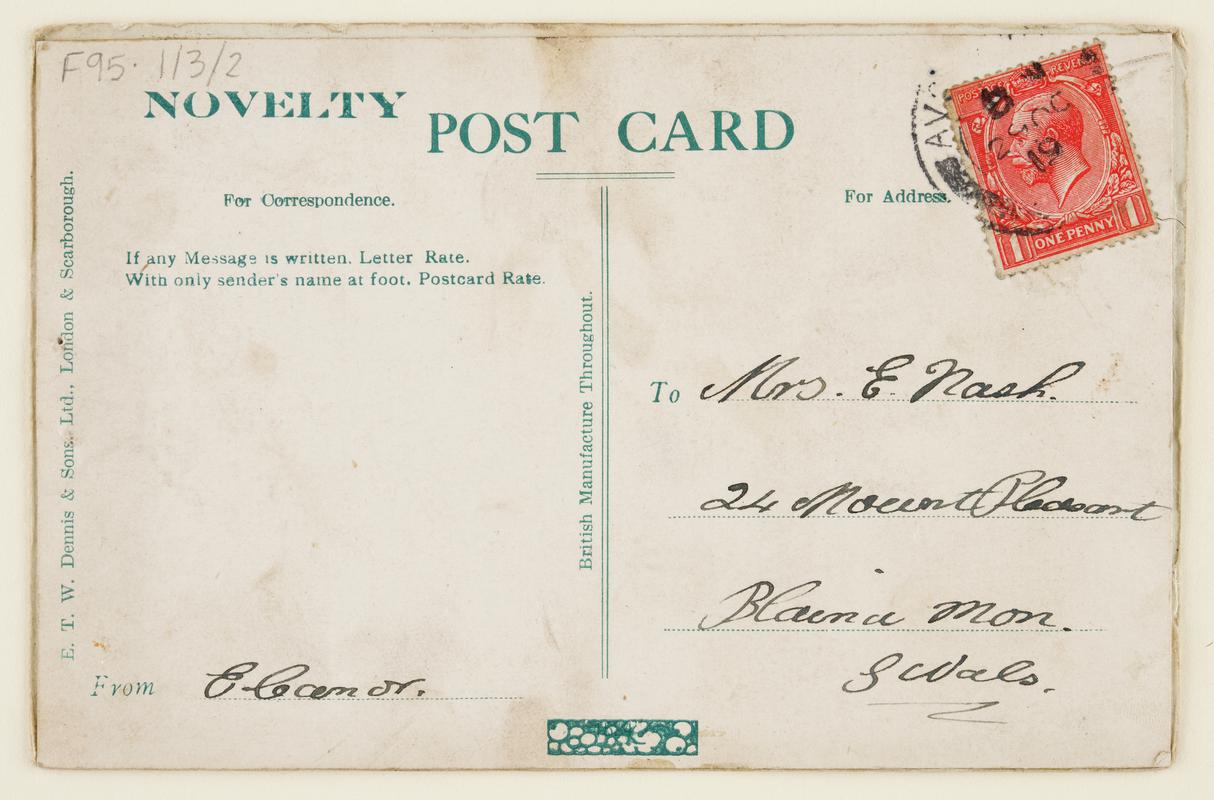 F95. 1/3/2
NOVELTY
POST CARD
For Correspondence.
For Address.
If any Message is written. Letter Rate.
With only sender's name at foot. Postcard Rate.
E. T. W. Dennis & Sons. Ltd., London & Scarborough.
British Manufacture Throughout.
REVENUE
ONE PENNY
1 1
To Mrs. E. Nash.
24 Mount Pleasant
Blaina Mon.
S Wals.
From Eleanor.